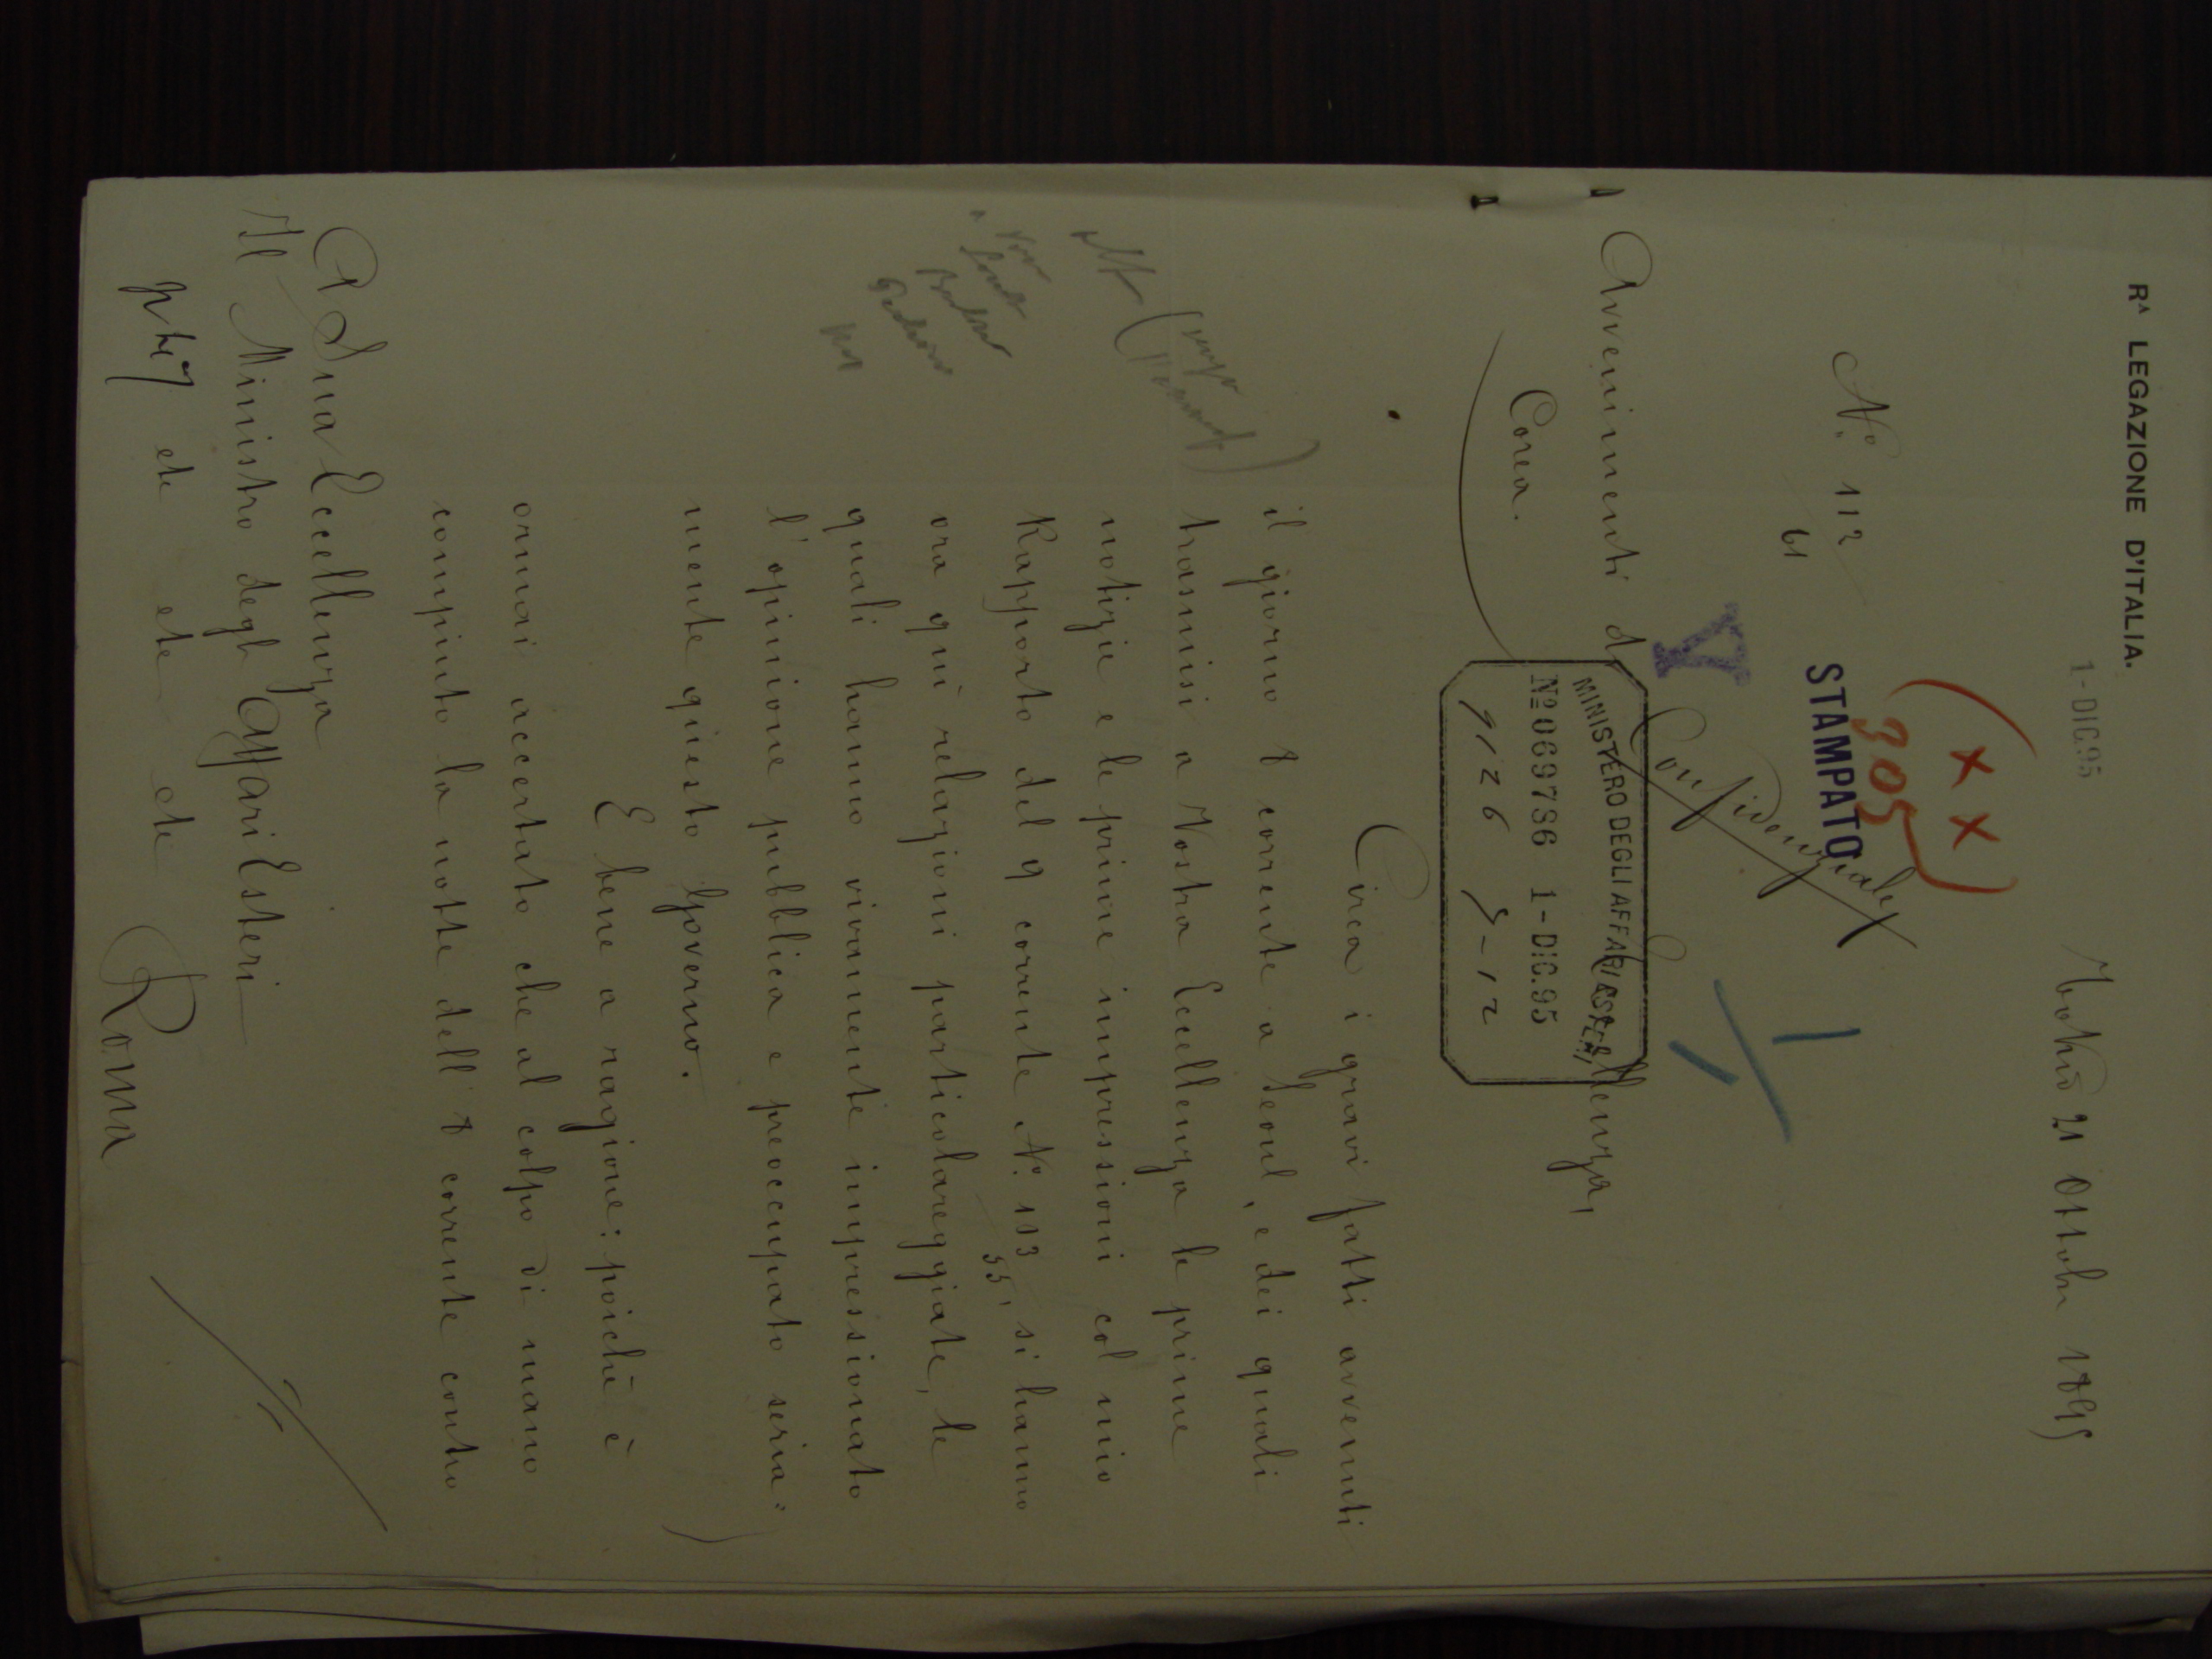 Rᴬ LEGAZIONE D'ITALIA.
1-DIC.95
Tokio 21 Ottobre 1895
(x x)
305
Nº 112
61
STAMPATO
Confidenziale
Avvenimenti di
Corea.
Eccellenza,
MINISTERO DEGLI AFFARI ESTERI
Nº 069736 1-DIC.95
9126 3-12
Circa i gravi fatti avvenuti
il giorno 8 corrente a Seoul, e dei quali
trasmisi a Vostra Eccellenza le prime
notizie e le prime impressioni col mio
Rapporto del 9 corrente Nº 113/55, si hanno
ora qui relazioni particolareggiate, le
quali hanno vivamente impressionato
l'opinione pubblica e preoccupato seria=
mente questo Governo.
E bene a ragione: poichè è
ormai accertato che al colpo di mano
compiuto la notte dell'8 corrente contro
A Sua Eccellenza
Il Ministro degli Affari Esteri
etc etc etc
Roma